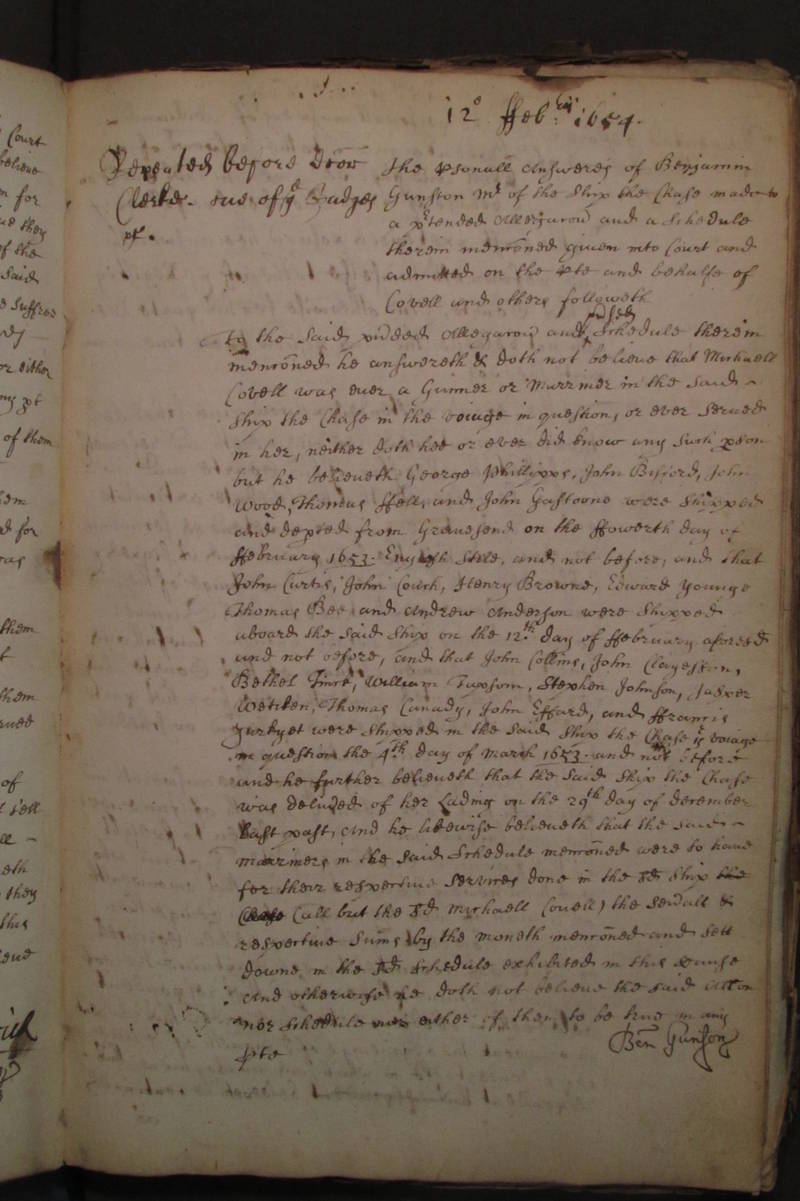 12o ffebry: 1654.
Repeated before Docor
Clerke. one of ye Judges
&c.
The psonall Answeres of Benjamin
Gunston Mr of the Ship the Chase made to
a ptended Allegacon and a Schedule
therein menconed given into Court and
admitted on the pte and behalfe of
Covell and others followeth
To the said pnded Allegacon and ptnded Schedule therein
menconed he answereth & doth not believe that Michaell
Covell was ever a Gunner or Marriner in the said
Ship the Chase in the voiage in question, or ever served
in her, neither doth hee or ever did know any such pson
but he believeth George Phillipps, John Bifford, John
Wood, Thomas ffell, and John Gastoone were shipped
and depted from Gravesend on the ffowerth day of
ffebruary 1653. English Stile, and not before, and that
John Curtis, John Couch, Henry Browne, Edward Younge
Thomas Bee and Andrew Anderson were Shipped
aboard the said Ship on the 12th day of ffebruary aforesd
and not before, and that John Collins, John Clayeston,
Bethel William Stephen Johnson, Jasper
Thomas Canady, John Effard, and ffrancis
were Shipped in the said Ship the Chase ye voiage
in question the 4th day of March 1653. and not before
and he further believeth that the said Ship the Chase
was delived of her Lading on the 29th day of december
last past, And he likewise believeth that the said
marriners in the said Schedule menconed were to have
for their respective services done in the sd ship the
Chase (all but the sd Michaell Covell) the severall &
respective sums by the moneth menconed and sett
downe in the sd Schedule exhibited in this Cause
And otherwise he doth not believe the said Allon
nor Schedule nor either of them to be true in any
pte
Ben Gunston
Court
believe
for
they
of the
said
suffred
or either
of them
for
them
them
of
they
this